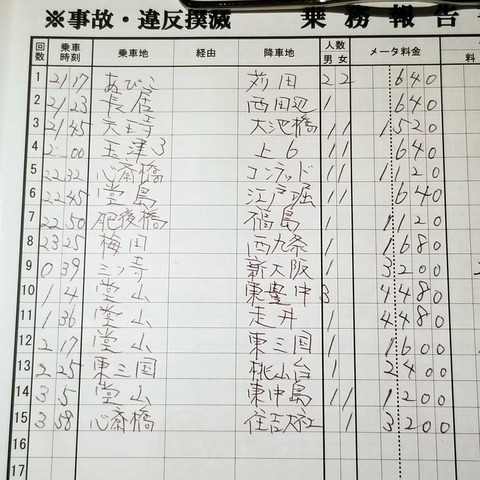 ※事故・違反撲滅 乗務報告
回数 乗車時刻 乗車地 経由 降車地 人数 男 女 メータ料金 料
1 21 17 あびこ 苅田 2 2 640
2 21 23 長居 西田辺 1 640
3 21 45 天王寺 大池橋 1 1 1520
4 2 00 玉津3 上6 1 1 640
5 22 32 心斎橋 コンラッド 1 1 1120
6 22 45 堂島 江戸堀 1 1 640
7 22 50 肥後橋 福島 1 1120
8 23 25 梅田 西九条 1 1680
9 0 39 三ッ寺 新大阪 1 3200
10 1 4 堂山 東豊中 3 4480
11 1 36 堂山 走井 1 4480
12 2 17 堂山 東三国 1 1600
13 2 25 東三国 桃山台 1 2400
14 3 5 堂山 東中島 1 1 1200
15 3 58 心斎橋 住吉大社 1 3200
16
17